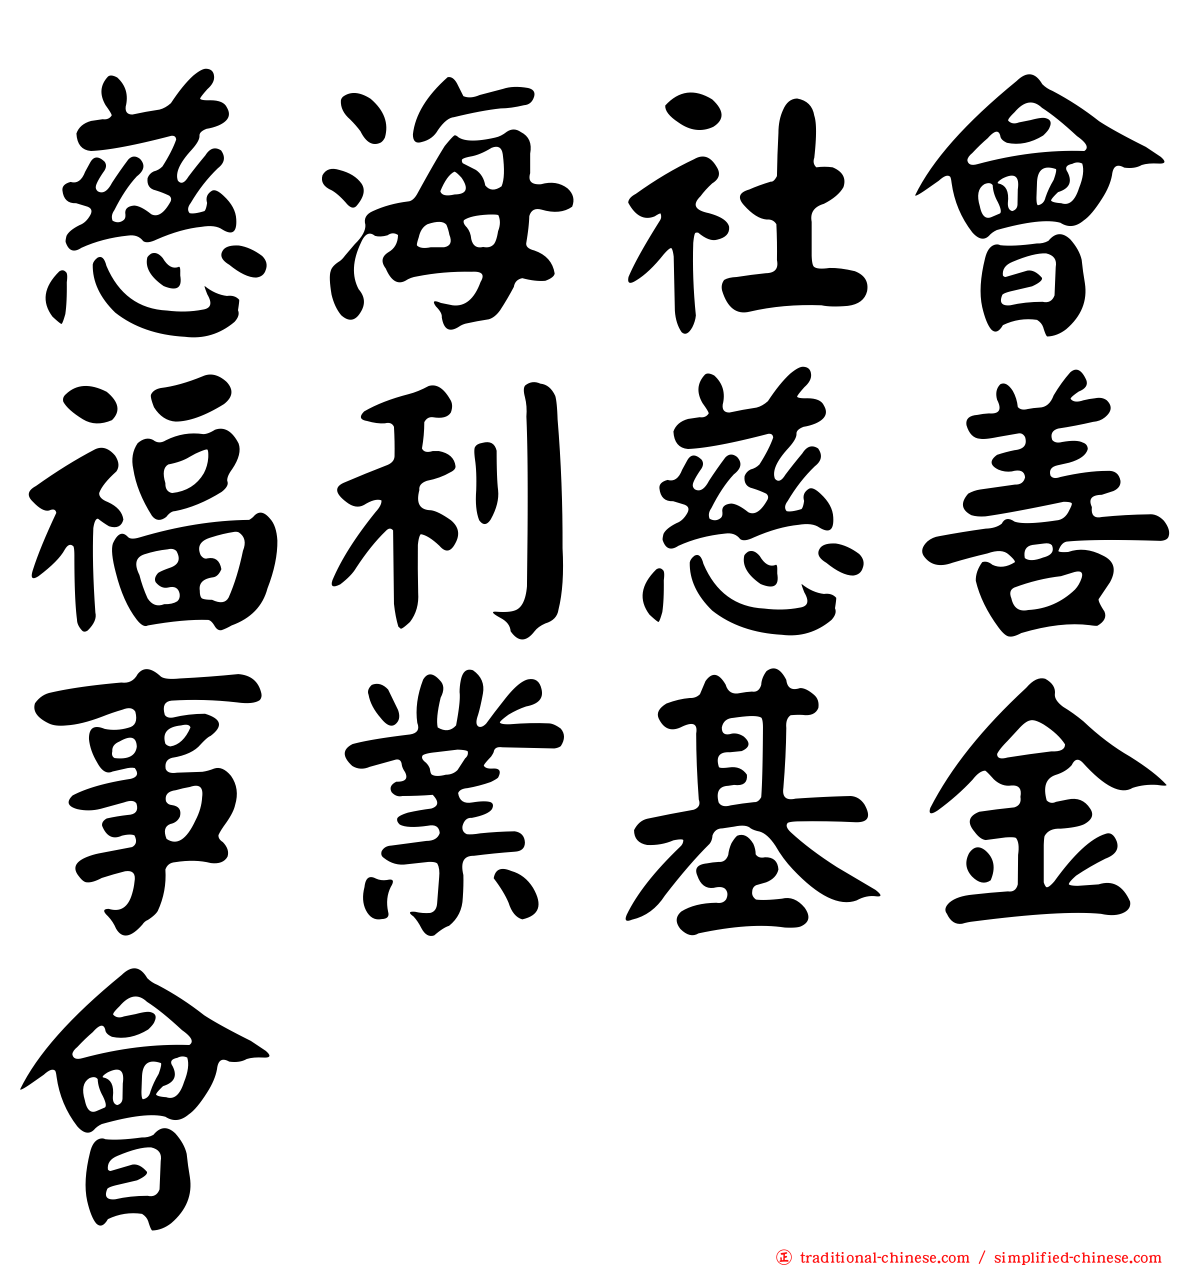 慈海社會
福利慈善
事業基金
會
正 traditional-chinese.com / simplified-chinese.com